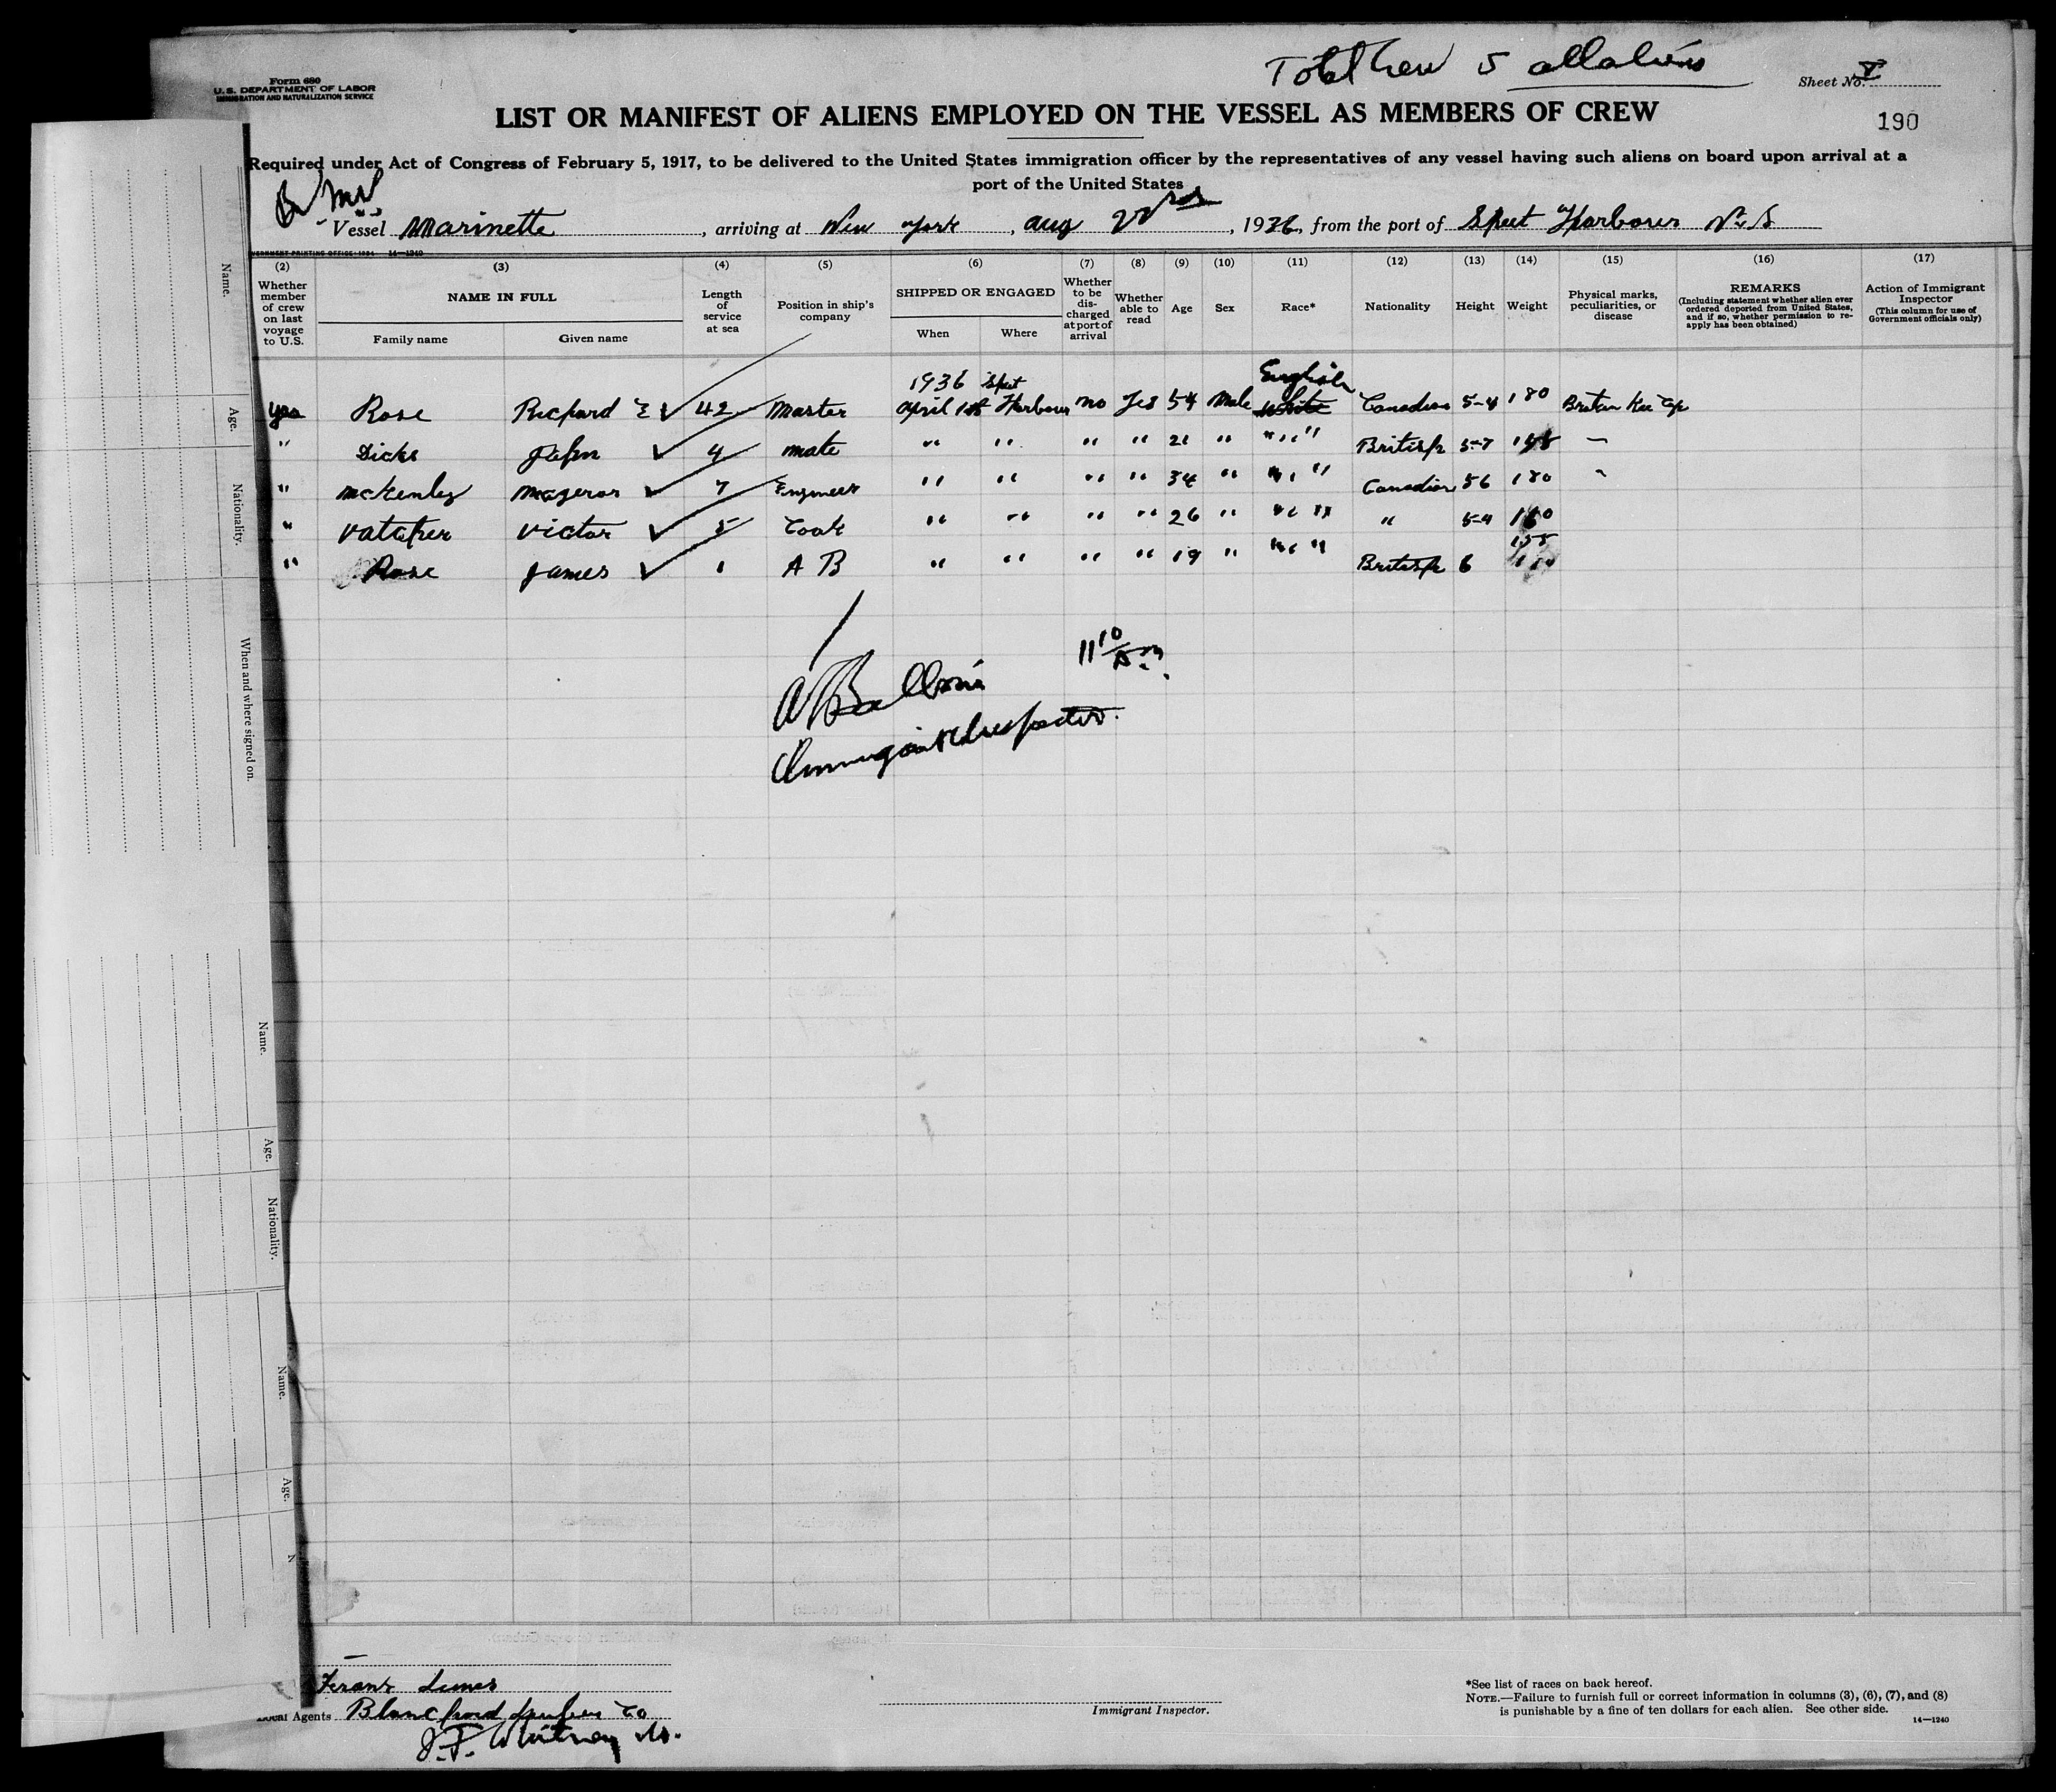 Total Crew 5 all aliens
Form 680
U. S. DEPARTMENT OF LABOR
IMMIGRATION AND NATURALIZATION SERVICE
Sheet No. V
LIST OR MANIFEST OF ALIENS EMPLOYED ON THE VESSEL AS MEMBERS OF CREW
190
Required under Act of Congress of February 5, 1917, to be delivered to the United States immigration officer by the representatives of any vessel having such aliens on board upon arrival at a
port of the United States
Vessel Marinette, arriving at New York, Aug 22nd, 1936, from the port of Sheet Harbour N. S
GOVERNMENT PRINTING OFFICE: 1934 14—1240
(2) (3) (4) (5) (6) (7) (8) (9) (10) (11) (12) (13) (14) (15) (16) (17)
Whether member of crew on last voyage to U.S.
NAME IN FULL
Family name Given name
Length of service at sea
Position in ship's company
SHIPPED OR ENGAGED
When Where
Whether to be discharged at port of arrival
Whether able to read
Age
Sex
Race*
Nationality
Height
Weight
Physical marks, peculiarities, or disease
REMARKS
(Including statement whether alien ever ordered deported from United States, and if so, whether permission to reapply has been obtained)
Action of Immigrant Inspector
(This column for use of Government officials only)
1936 Sheet English
yes Rose Richard E ✓ 42 Master April 1st Harbour no Yes 54 Male White Canadian 5-4 180 Broken Knee Cap
" Dicks John ✓ 4 mate " " " " 21 " " " " British 5-7 —
" McKenley ✓ 7 Engineer " " " " 34 " " " " Canadian 5 6 180 "
" Vatcher Victor ✓ 5 Cook " " " " 26 " " " " " 5-9
155
" Rose James ✓ 1 A B " " " " 19 " " " " British 6
11 10/A.m.
Immigrant Inspector.
Name.
Age.
Nationality.
When and where signed on.
Name.
Age.
Nationality.
Name.
Age.
N
Local Agents Blanchard Lumber Co
J. F. Whitney Co.
Immigrant Inspector.
*See list of races on back hereof.
NOTE.—Failure to furnish full or correct information in columns (3), (6), (7), and (8)
is punishable by a fine of ten dollars for each alien. See other side.
14—1240